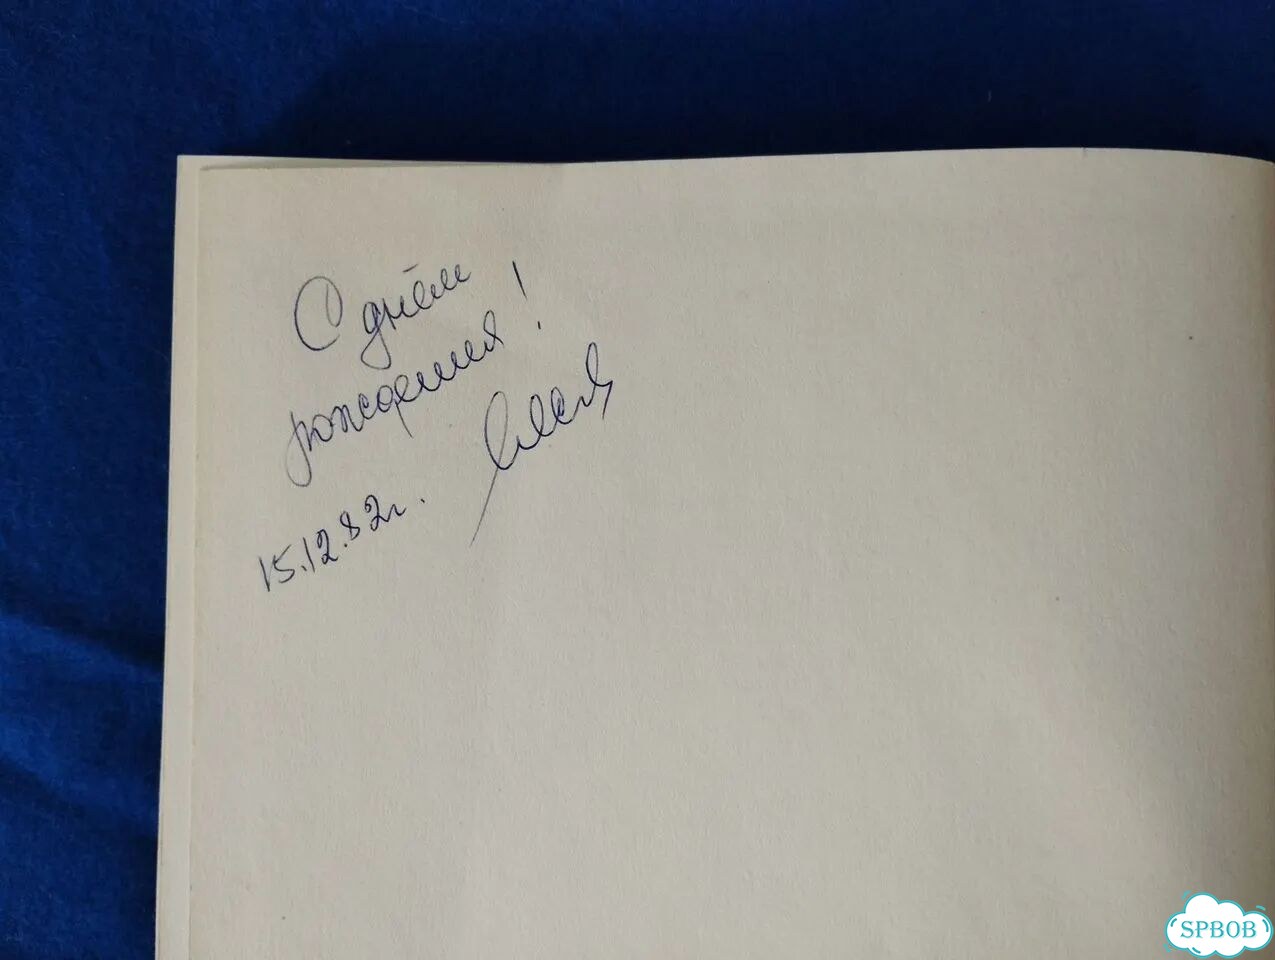 С днём
рождения!
15.12.82г.
SPBOB